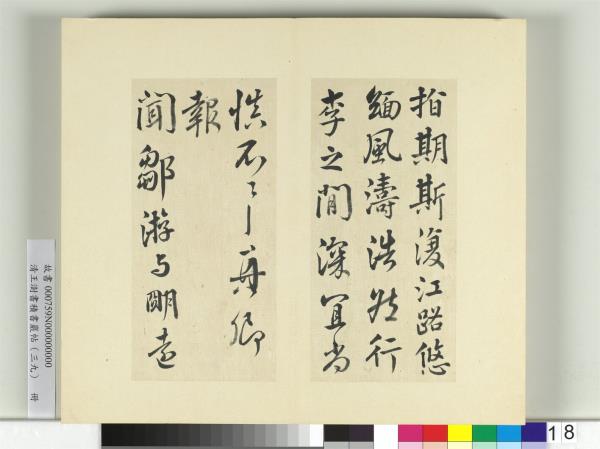 指期斯復江路悠
緬風濤浩然行
李之間深宜尚
慎不具再卿
報
聞鄒游與明遠
故書000759N000000000
清王澍書積書巖帖(三九) 冊
18